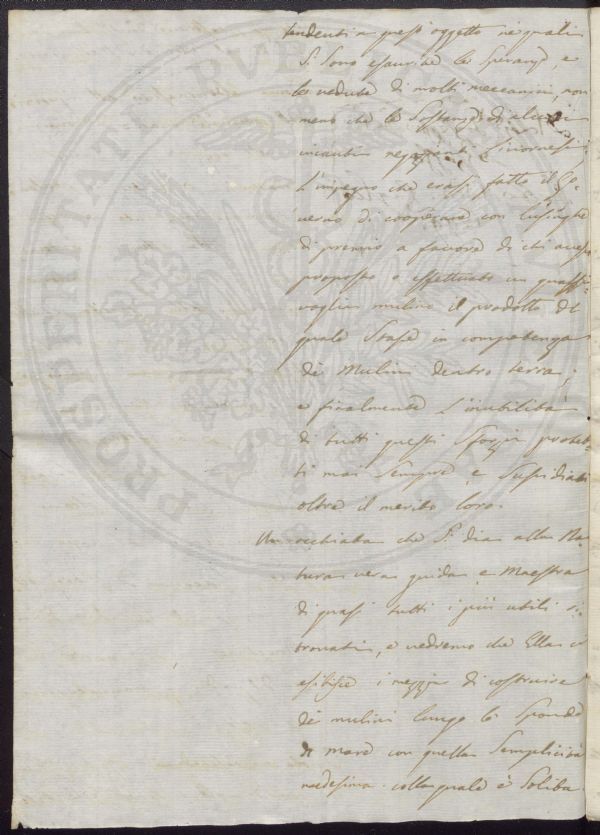 tendenti a questi oggetto ne quali
si sono esaurite le speranze, e
le vedute di molti meccanici, non
meno che le sostanze di alcuni
incauti negozianti Livornesi;
L'impegno che erasi fatto il Go-
verno di cooperare con lusinghe
di premio a favore di chi avesse
proposto o effettuato un qualsi-
voglia mulino il prodotto del
quale stasse in competenza
de Mulini dentro terra;
e finalmente l'inutilità
di tutti questi sforzi protet-
ti mai sempre e sussidiati
oltre il merito loro.
Un occhiata che si dia alla Na-
tura vera guida e Maestra
di quasi tutti i più utili ri-
trovati, e vedremo che Ella ci
esibisce i mezzi di costruire
de mulini lungo le sponde
di mare con quella semplicità
medesima colla quale è solita